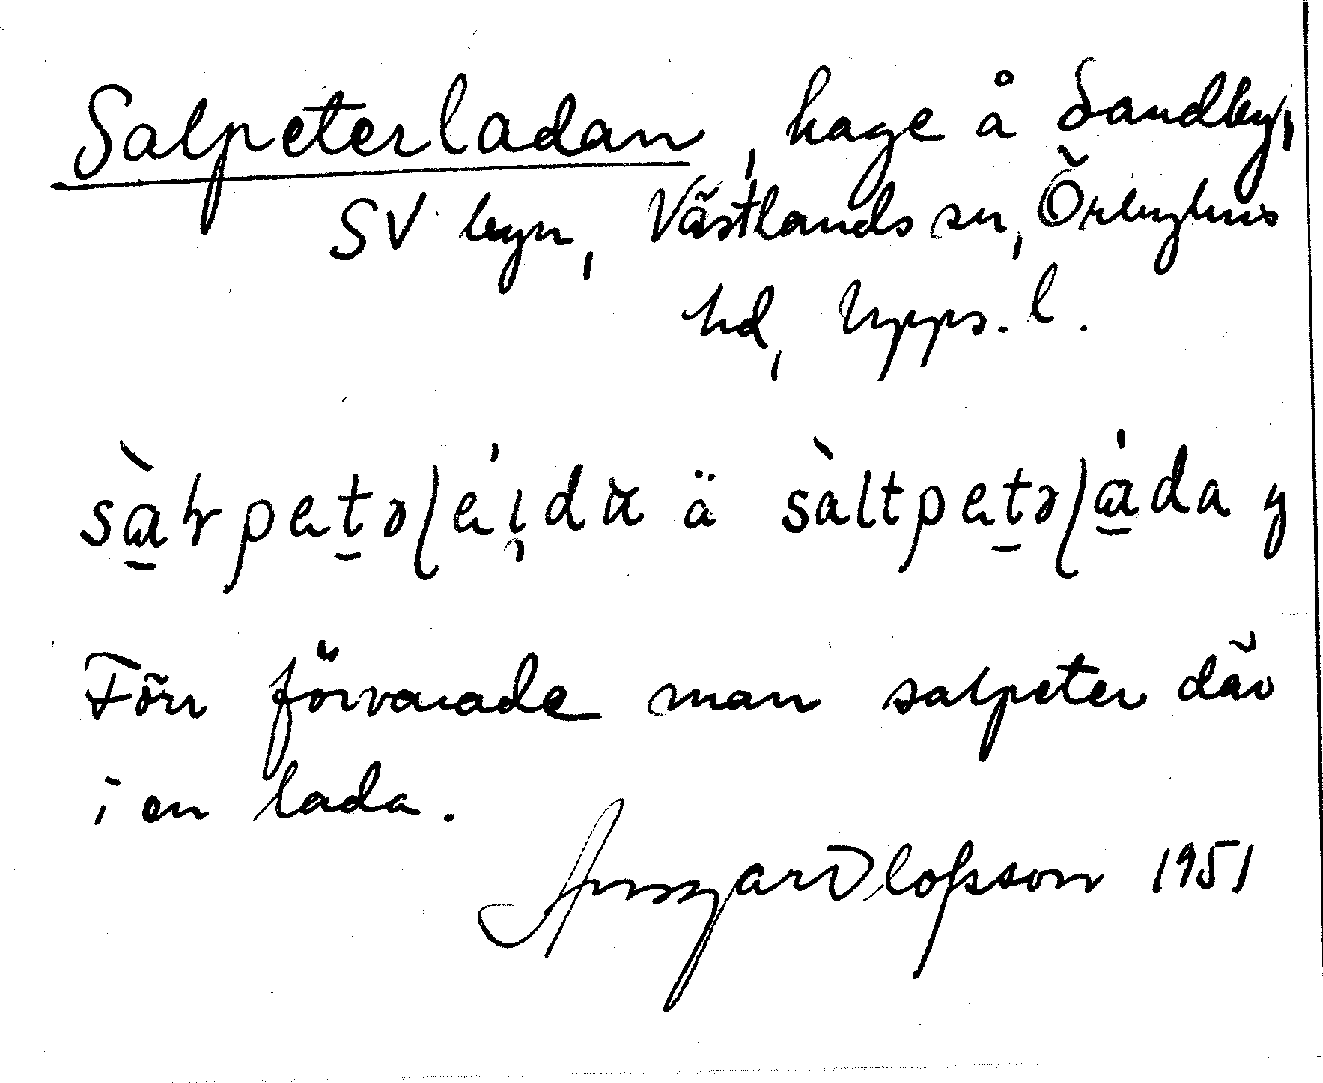 Salpeterladan, hage å Sandby,
SV byn, Västlands sn, Örbyhus
hd, Upps. l.
ä sàltpetəláda y
Förr förvarade man salpeter där
i en lada.
Ansgar Olofsson 1951